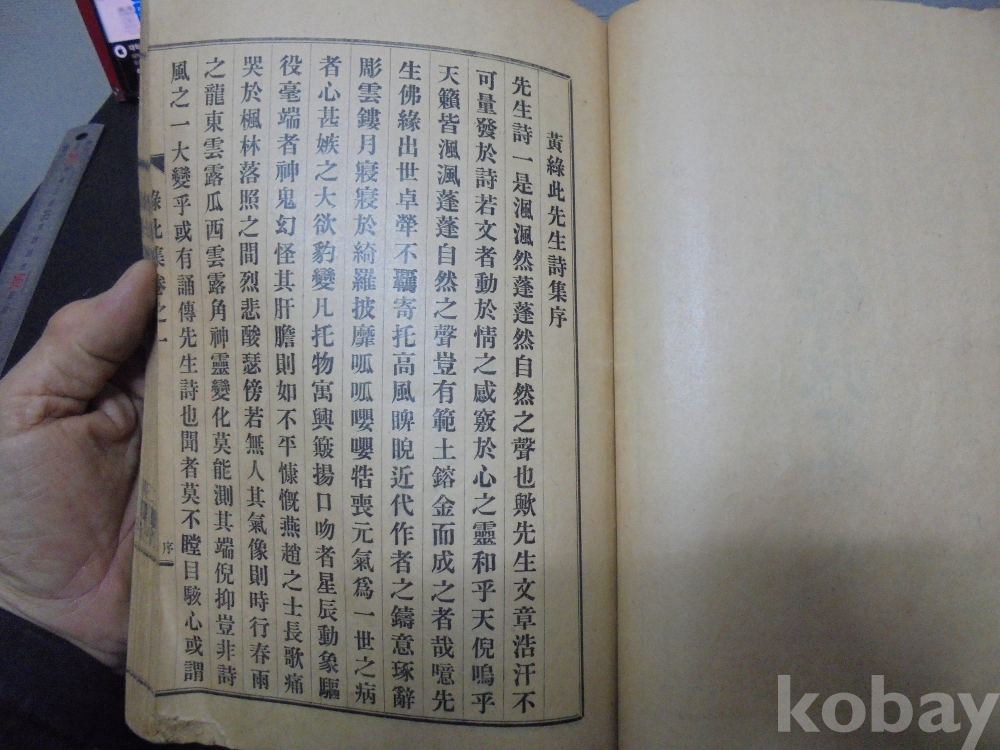 黃綠此先生詩集序
先生詩一是渢渢然蓬蓬然自然之聲也歟先生文章浩汗不
可量發於詩若文者動於情之感竅於心之靈和乎天倪鳴乎
天籟皆渢渢蓬蓬自然之聲豈有範土鎔金而成之者哉噫先
生佛緣出世卓犖不羈寄托高風睥睨近代作者之鑄意琢辭
彫雲鏤月寢寢於綺羅披靡呱呱嚶嚶牿喪元氣爲一世之病
者心甚嫉之大欲豹變凡托物寓興簸揚口吻者星辰動象驅
役毫端者神鬼幻怪其肝膽則如不平慷慨燕趙之士長歌痛
哭於楓林落照之間烈悲酸瑟傍若無人其氣像則時行春雨
之龍東雲露瓜西雲露角神靈變化莫能測其端倪抑豈非詩
風之一大變乎或有誦傳先生詩也聞者莫不瞠目駭心或謂
綠此集卷之一
序
kobay